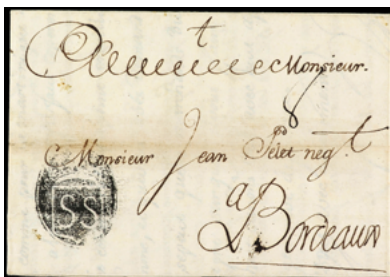 Monsieur.
Monsieur Jean Pelet neg.t
a Bordeaux
SS